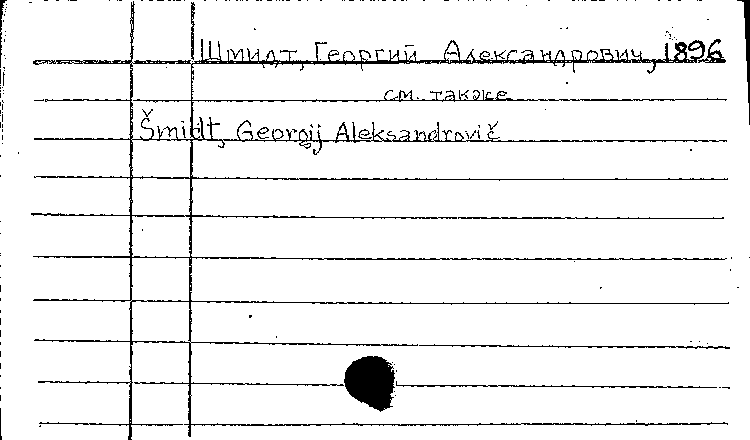 Шмидт, Георгий Александрович, 1896
см. также
Šmidt, Georgij Aleksandrovič